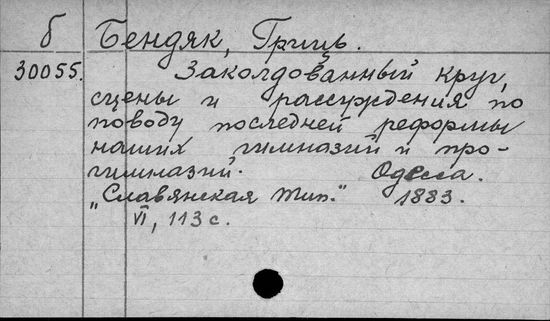 б Бендяк, Гриць.
30055. Заколдованный круг,
сцены и рассуждения по
поводу последней реформы
наших гимназий и про-
гимназий. Одесса.
"Славянская тип." 1883.
VI, 113 с.